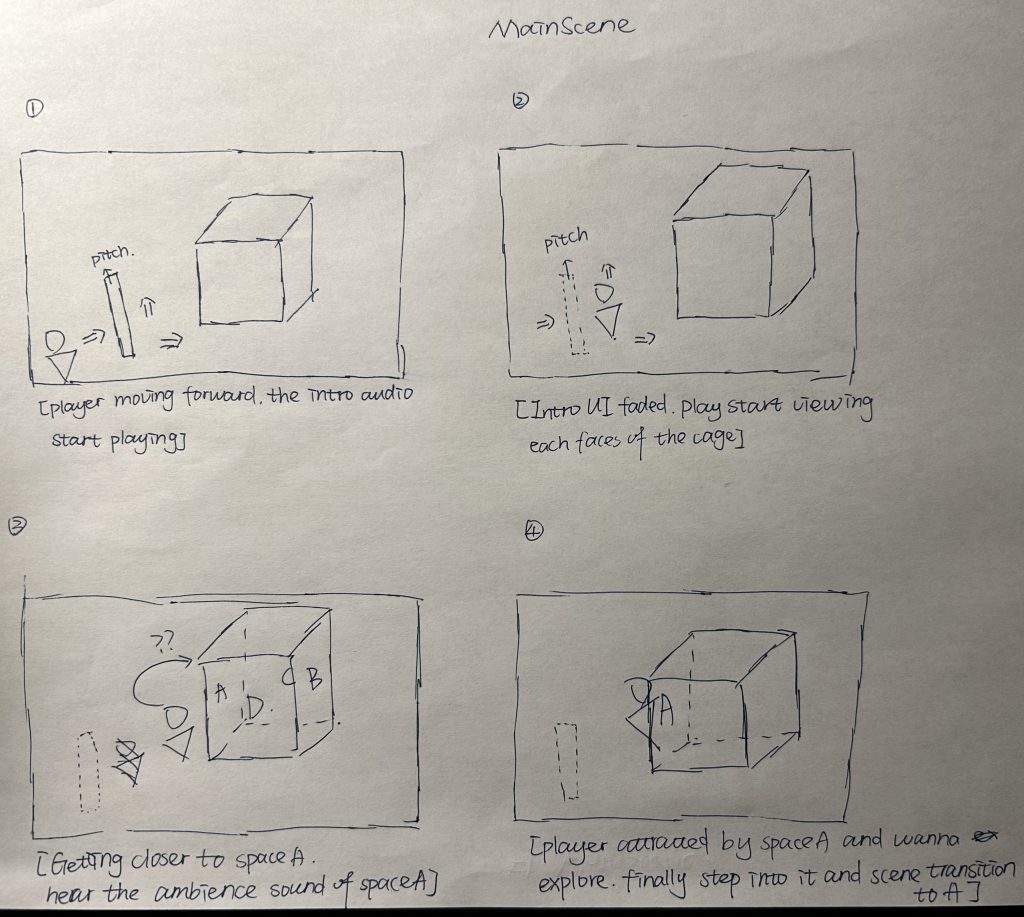 MainScene
①
②
pitch.
pitch
[player moving forward. the intro audio
start playing]
[Intro UI faded. play start viewing
each faces of the cage]
③
④
??
A
C
B
D.
A
[Getting closer to space A.
hear the ambience sound of space A]
[player attracted by space A and wanna
explore. finally step into it and scene transition
to A]